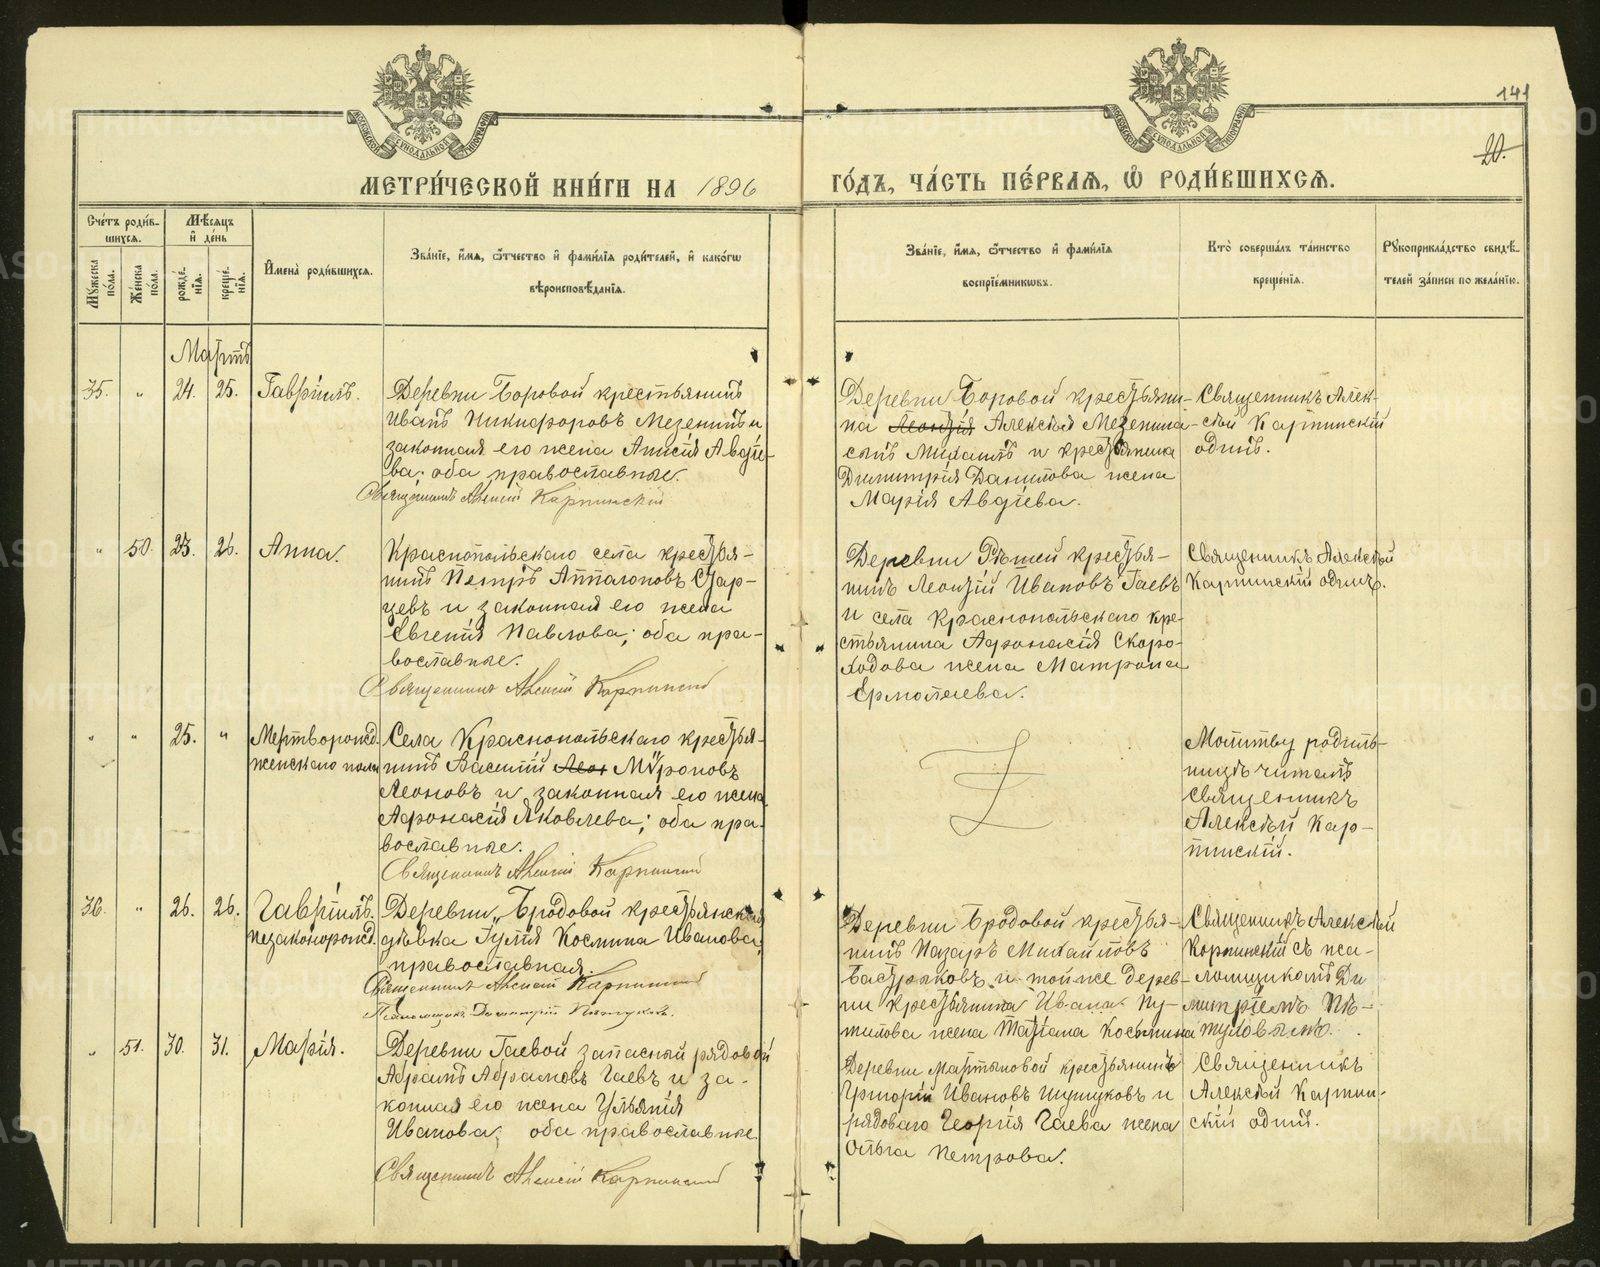 141
20.
МЕТРИ́ЧЕСКОЙ КНИ́ГИ НА 1896 ГО́ДЪ, ЧА́СТЬ ПЕ́РВАѦ, Ѽ РОДИ́ВШИХСѦ.
Сче́тъ роди́в-
шихсѧ.
Мѣсѧцъ
и҆ де́нь
Му́жеска по́ла.
Же́нска по́ла.
рожде́-
нїѧ.
креще́-
нїѧ.
И҆мена̀ роди́вшихсѧ.
Зва́нїе, и҆́мѧ, ѻ҆́тчество и҆ фами́лїѧ роди́телей, и҆ како́гѡ
вѣроисповѣ́данїѧ.
Зва́нїе, и҆́мѧ, ѻ҆́тчество и҆ фами́лїѧ
воспрїе́мникѡвъ.
Кто̀ соверша́лъ та́инство
креще́нїѧ.
Рꙋкоприкла́дство свидѣ́-
телей за́писи по жела́нїю.
Мартъ
35. " 24. 25. Гавріилъ.
Деревни Боровой крестьянинъ
Иванъ Никифоровъ Мезенинъ и
законная его жена Анисія Авдіе-
ва; оба православные.
Священникъ Алексій Карпинскій
Деревни Боровой крестьяни-
на Леонтія Алексѣя Мезенина
сынъ Михаилъ и крестьянина
Димитрія Данилова жена
Марія Авдіева.
Священникъ Алек-
сѣй Карпинскій
одинъ.
" 50. 25. 26. Анна.
Краснопольскаго села крестья-
нинъ Петръ Апполоновъ Стар-
цевъ и законная его жена
Евгенія Павлова; оба пра-
вославные.
Священникъ Алексій Карпинскій
Деревни Рѣшей крестья-
нинъ Леонтій Ивановъ Гаевъ
и села Краснопольскаго кре-
стьянина Афонасія Скоро-
ходова жена Матрона
Ермолаева.
Священникъ Алексѣй
Карпинскій одинъ.
" " 25. " Мертворожд.
женскаго пола
Села Краснопольскаго крестья-
нинъ Василій Леон Мѵроновъ
Леоновъ и законная его жена
Афонасія Яковлева; оба пра-
вославные.
Священникъ Алексій Карпинскій
Молитву родиль-
ницѣ читалъ
священникъ
Алексѣй Кар-
пинскій.
36. " 26. 26. Гавріилъ.
незаконорожд.
Деревни Бродовой крестьянская
дѣвка Іулія Космина Иванова,
православная.
Священникъ Алексій Карпинскій
Псаломщикъ Димитрій Пѣтуховъ.
Деревни Бродовой крестья-
нинъ Назаръ Михаиловъ
Бастраковъ и тойже дерев-
ни крестьянина Ивана
жена Татіана Космина
Священникъ Алексѣй
Карпинскій съ пса-
ломщикомъ Ди-
митріемъ Пѣ-
туховымъ.
" 51. 30. 31. Марія.
Деревни Гаевой запасный рядовой
Абрамъ Абрамовъ Гаевъ и за-
конная его жена Ульянія
Иванова; оба православные.
Священникъ Алексій Карпинскій
Деревни Мартыновой крестьянинъ
Григорій Ивановъ Шутуковъ и
рядоваго Георгія Гаева жена
Ольга Петрова.
Священникъ
Алексѣй Карпин-
скій одинъ.
METRIKI.GASO-URAL.RU